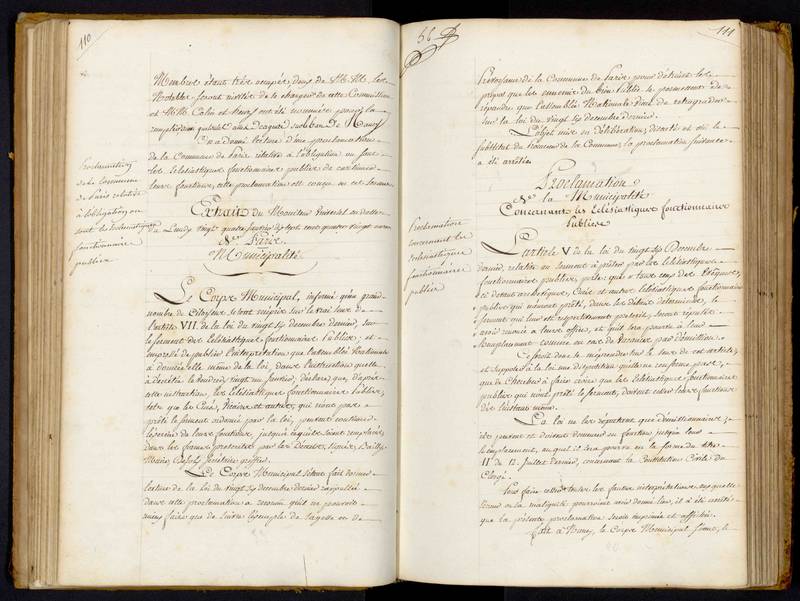 110
Membres étant très occupés, deux de MM. les
Notables seront invités de se charger de cette Commission
et MM. Colin et ont été nommés pour la
Proclamation
de la Commune
de Paris relative
à l'obligation où
sont les Ecclésiastiques
fonctionnaires
publics
On a donné lecture d'une proclamation
de la Commune de Paris relative à l'obligation où sont
les Ecclésiastiques fonctionnaires publics de continuer
leurs fonctions, cette proclamation est conçue en ces termes
Extrait du Moniteur Universel en datte
du Lundy vingt quatre janvier mil sept cent quatre vingt onze
De Paris
Municipalité
Le Corps Municipal, informé qu'un grand
nombre de Citoyens se sont mépris sur le vrai sens de
l'article VII. de la loi du vingt six decembre dernier, sur
le serment des Ecclésiastiques fonctionnaires Publics; et
empressé de publier l'interprétation que l'assemblée Nationale
a donnée elle même de la loi, dans l'instruction qu'elle
a decrétée le Vendredi vingt un Janvier; déclare que, d'après
cette instruction, les Ecclésiastiques fonctionnaires Publics,
tels que les Curés, Vicaires et autres, qui n'ont pas
prêté le serment ordonné par la loi, peuvent continuer
l'exercice de leurs fonctions, jusqu'à ce qu'ils soient remplacés
dans les formes prescrites par les Décrets, signés, Bailly
Maire, Dejoly, secrétaire greffier.
Le Corps Municipal s'étant fait donner
lecture de la loi du vingt six decembre dernier rappellée
dans cette proclamation a reconnu qu'il ne pouvoit
mieux faire que de suivre l'exemple de sagesse et de
56
111
Prévoyance de la Commune de Paris pour détruire les
propos que les ennemis du bien public se permettent de
répandre que l'assemblée Nationale vient de retrograder
sur la loi du vingt six decembre dernier.
L'objet mis en déliberation, discuté et ouï le
substitut du Procureur de la Commune, la proclamation suivante
a été arrêtée
Proclamation
concernant les
Ecclésiastiques
fonctionnaires
publics
Proclamation
De la Municipalité
Concernant les Ecclésiastiques fonctionnaires
Publics
L'article V de la loi du vingt six Decembre
dernier, relative au serment à prêter par les Ecclésiastiques
fonctionnaires publics, porte: que « tous ceux des Evêques,
ci devant archevêques, Curés et autres Ecclésiastiques fonctionnaires
publics qui n'auront prêté, dans les délais déterminés, le
serment qui leur est respectivement prescrit, seront réputés
avoir renoncé à leurs offices, et qu'il sera pourvu à leur
remplacement comme en cas de Vacance par démission.
Ce seroit donc se méprendre sur le sens de cet article,
et supposer à la loi une disposition qu'elle ne renferme pas,
que de Chercher à faire croire que les Ecclésiastiques fonctionnaires
publics qui n'ont prêté le serment, doivent cesser leurs fonctions
dès l'instant même.
La loi ne les réputant que démissionnaires,
ils peuvent et doivent demeurer en fonction jusqu'à leur
remplacement, auquel il sera pourvu en la forme du titre
II du 12. Juillet dernier, concernant la Constitution Civile du
Clergé.
Pour faire cesser toutes les fausses interprétations auxquelles
l'erreur ou la malignité pourroient avoir donné lieu, il a été arrêté
que la présente proclamation seroit imprimée et affichée.
Fait à Nancy, le Corps Municipal tenant, le